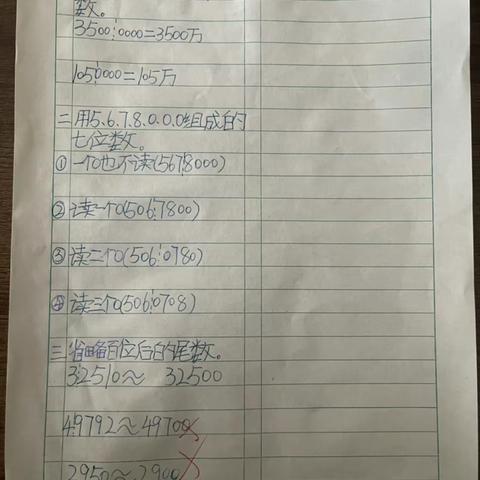 数。
3500┊0000=3500万
105┊0000=105万
二用5.6.7.8.0.0.0组成的
七位数。
①一个0也不读(567┊8000)
②读一个0(506┊7800)
③读二个0(506┊0780)
④读三个0(506┊0708)
三省略百位后的尾数。
32510≈ 32500
49792≈49700
2950≈2900